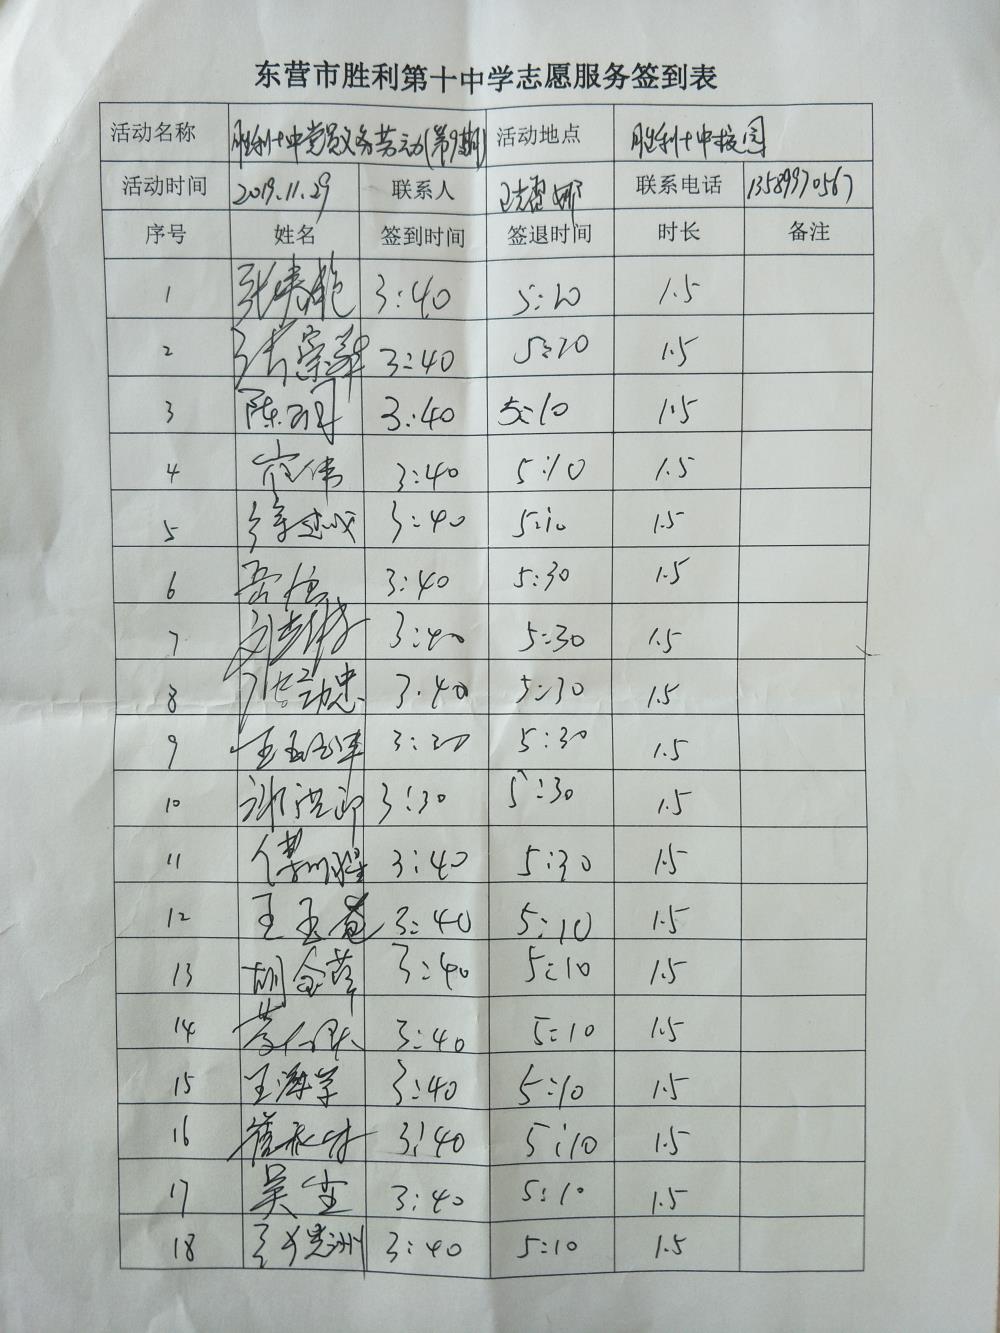 东营市胜利第十中学志愿服务签到表
活动名称 胜利十中党员义务劳动(第9期) 活动地点 胜利十中校园
活动时间 2019.11.29 联系人 联系电话 13589970567
序号 姓名 签到时间 签退时间 时长 备注
1 3:40 5:20 1.5
2 3:40 5:20 1.5
3 陈丽 3:40 5:10 1.5
4 崔伟 3:40 5:10 1.5
5 3:40 5:10 1.5
6 3:40 5:30 1.5
7 3:40 5:30 1.5
8 3:40 5:30 1.5
9 3:30 5:30 1.5
10 3:30 5:30 1.5
11 3:40 5:30 1.5
12 3:40 5:10 1.5
13 胡金萍 3:40 5:10 1.5
14 3:40 5:10 1.5
15 王海军 3:40 5:10 1.5
16 3:40 5:10 1.5
17 3:40 5:10 1.5
18 3:40 5:10 1.5